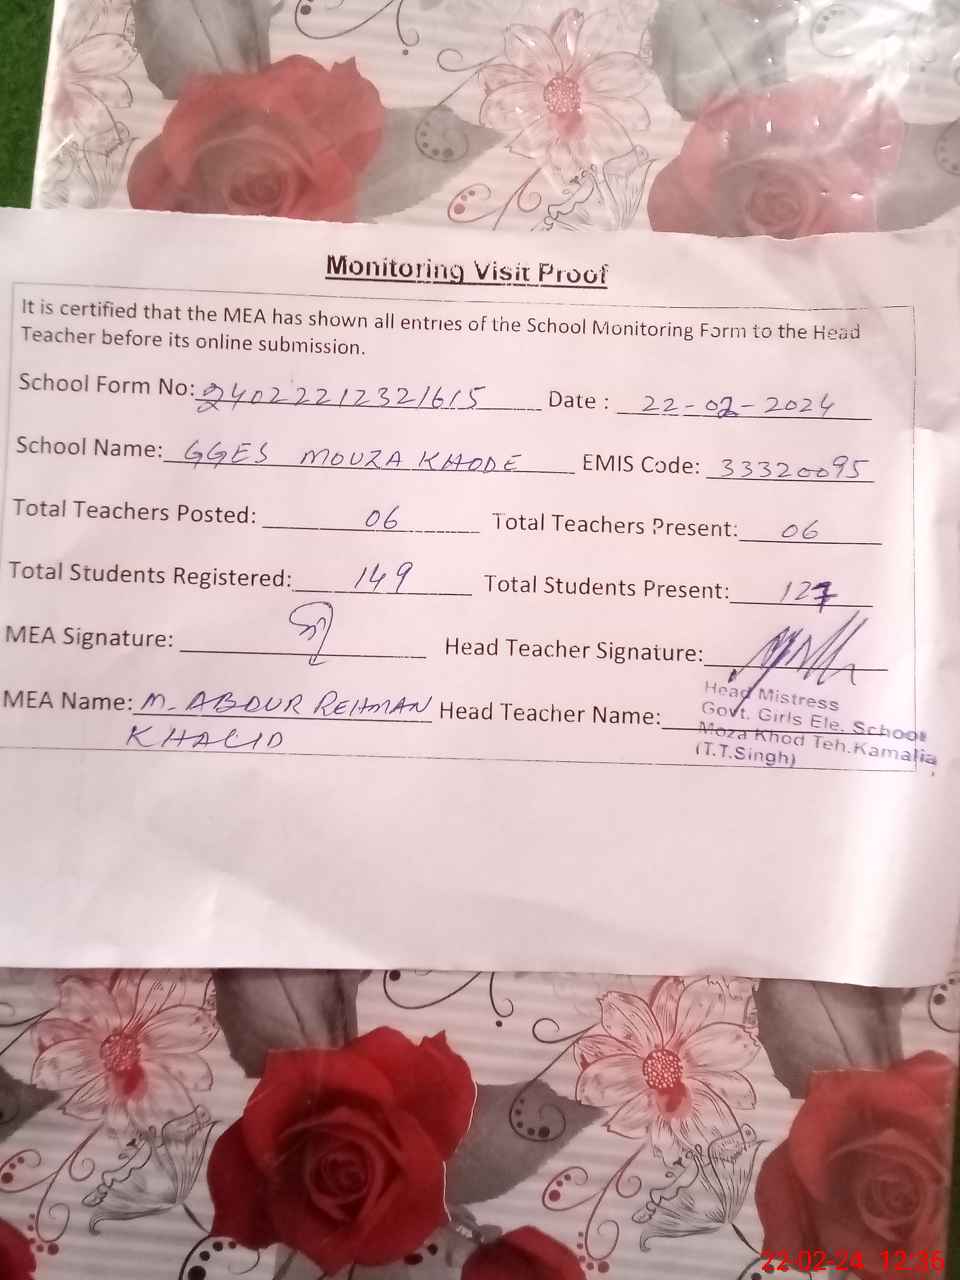 Monitoring Visit Proof
It is certified that the MEA has shown all entries of the School Monitoring Form to the Head
Teacher before its online submission.
School Form No: 24022212321615 Date : 22-02-2024
School Name: GGES MOUZA KHODE EMIS Code: 33320095
Total Teachers Posted: 06 Total Teachers Present: 06
Total Students Registered: 149 Total Students Present: 127
MEA Signature: Head Teacher Signature:
MEA Name: M. ABDUR REHMAN Head Teacher Name:
KHALID
Head Mistress
Govt. Girls Ele. School
Moza Khod Teh.Kamalia
(T.T.Singh)
22-02-24 12:36